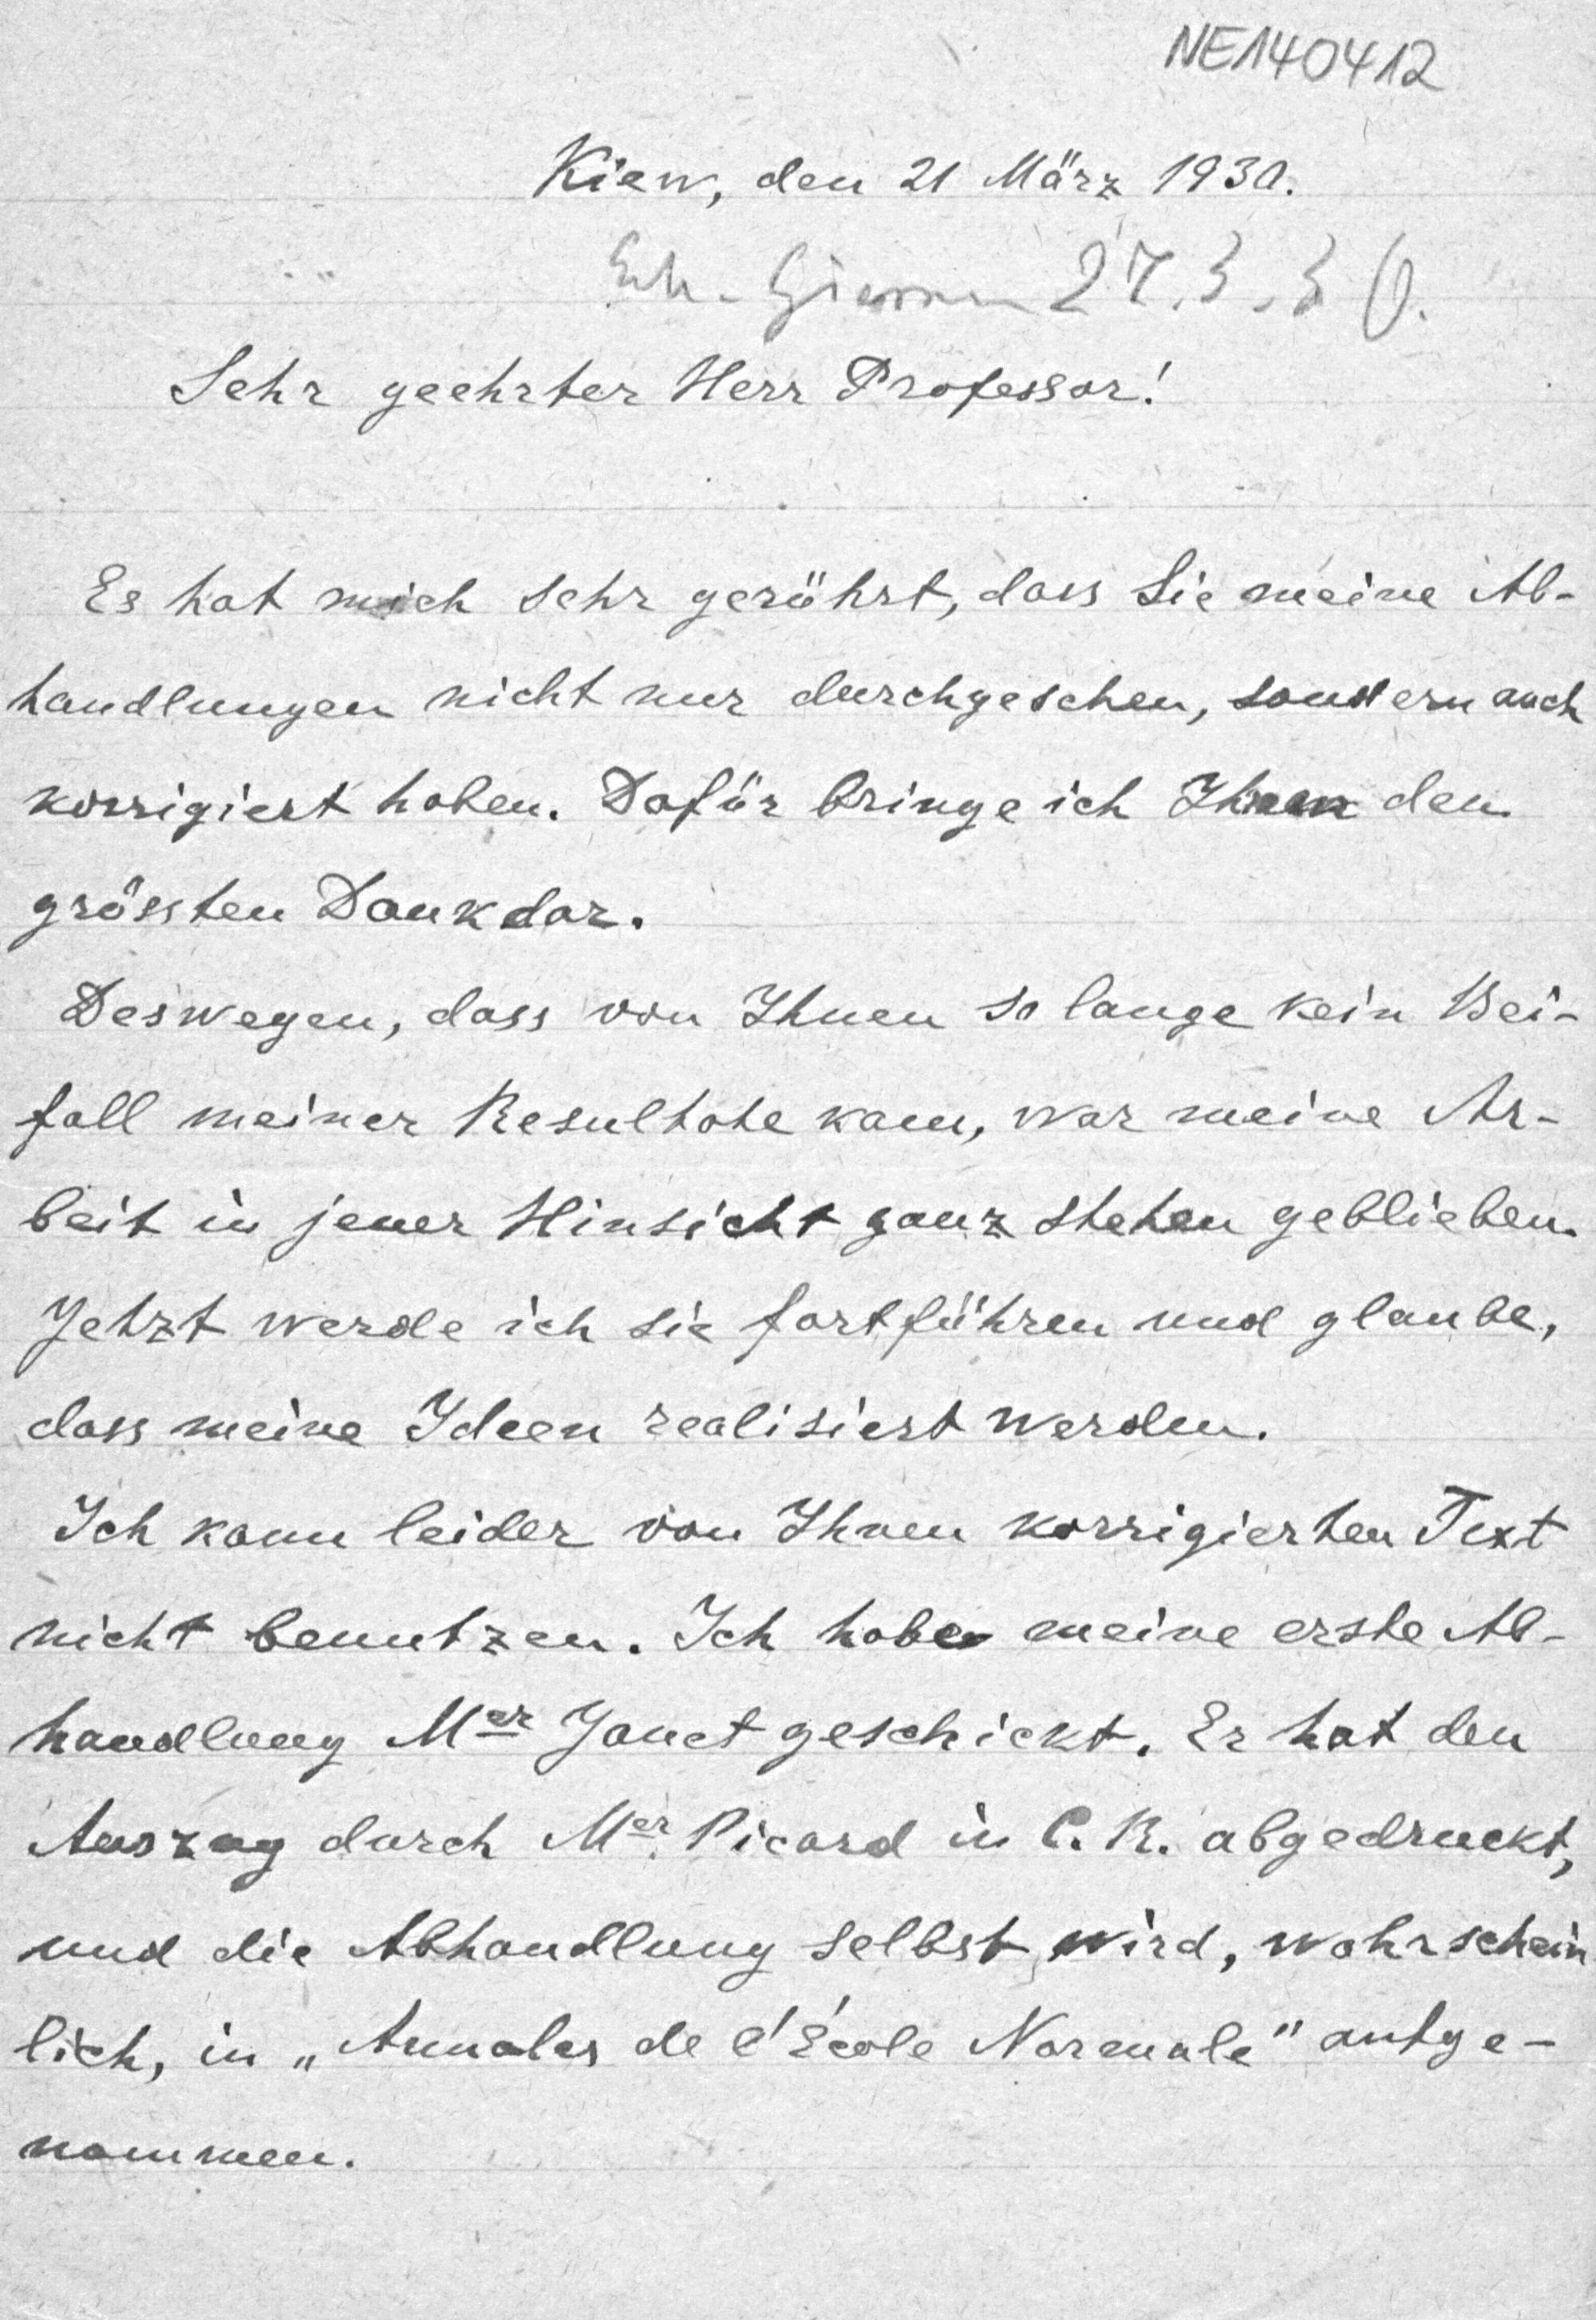 NE140412
Kiew, den 21 März 1930.
27.3.30.
Sehr geehrter Herr Professor!
Es hat mich sehr gerührt, dass Sie meine Ab-
handlungen nicht nur durchgesehen, sondern auch
korrigiert haben. Dafür bringe ich Ihnen den
grössten Dank dar.
Deswegen, dass von Ihnen so lange kein Bei-
fall meiner Resultate kam, war meine Ar-
beit in jener Hinsicht ganz stehen geblieben.
Jetzt werde ich sie fortführen und glaube,
dass meine Ideen realisiert werden.
Ich kann leider von Ihnen korrigierten Text
nicht benutzen. Ich habe meine erste Ab-
handlung Mer Janet geschickt. Er hat den
Auszug durch Mer Picard in C. R. abgedruckt,
und die Abhandlung selbst wird, wahrschein
lich, in „Annales de l'École Normale" aufge-
nommen.